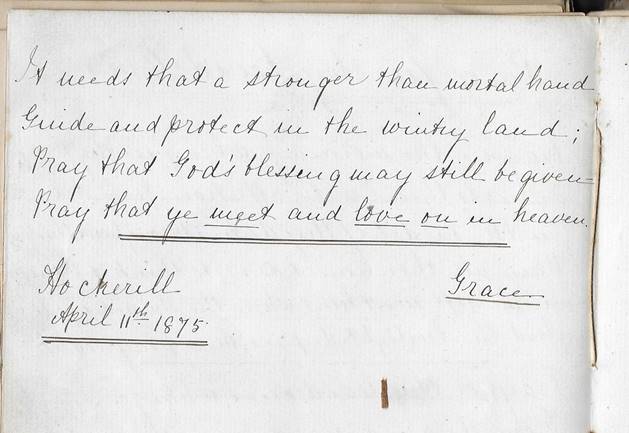 It needs that a stronger than mortal hand
Guide and protect in the wintry land;
Pray that God's blessing may still be given
Pray that ye meet and love on in heaven.
Hockerill
Grace
April 11th 1875.